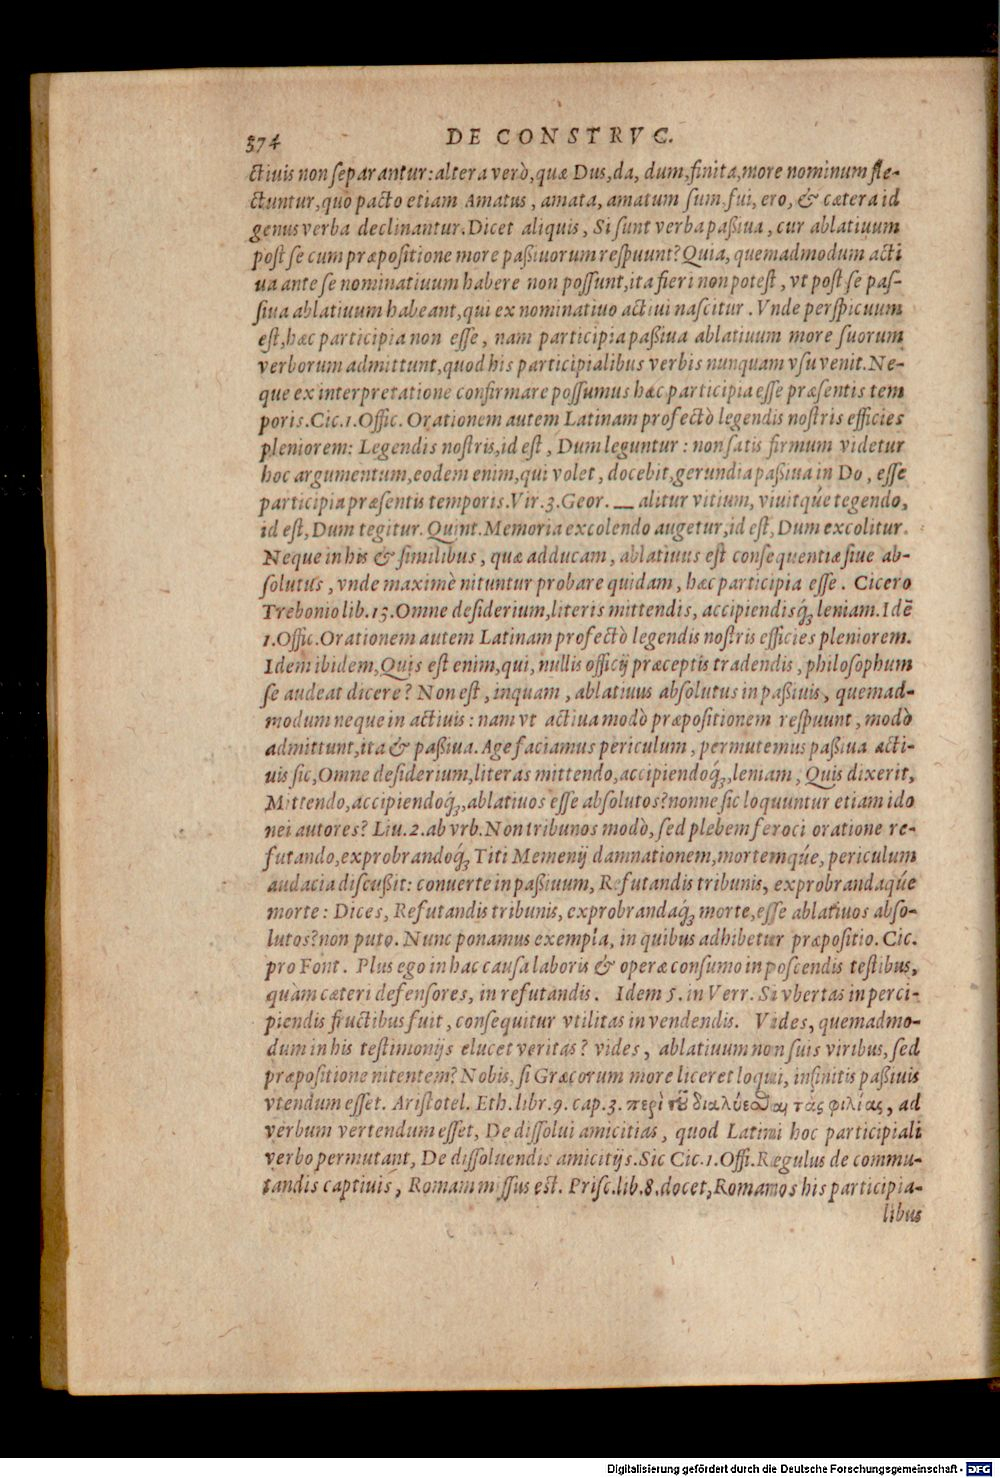 374 DE CONSTRVC.
ctiuis non ſeparantur: altera verò, quæ Dus, da, dum, finita, more nominum fle-
ctuntur, quo pacto etiam Amatus, amata, amatum ſum, fui, ero, & cætera id
genus verba declinantur. Dicet aliquis, Si ſunt verba paßiua, cur ablatiuum
poſt ſe cum præpoſitione more paßiuorum reſpuunt? Quia, quemadmodum acti
ua ante ſe nominatiuum habere non poſſunt, ita fieri non poteſt, vt poſt ſe paſ-
ſiua ablatiuum habeant, qui ex nominatiuo actiui naſcitur. Vnde perſpicuum
eſt, hæc participia non eſſe, nam participia paßiua ablatiuum more ſuorum
verborum admittunt, quod his participialibus verbis nunquam vſu venit. Ne-
que ex interpretatione confirmare poſſumus hæc participia eſſe præſentis tem
poris. Cic. 1. Offic. Orationem autem Latinam profectò legendis noſtris efficies
pleniorem: Legendis noſtris, id eſt, Dum leguntur: non ſatis firmum videtur
hoc argumentum, eodem enim, qui volet, docebit, gerundia paßiua in Do, eſſe
participia præſentis temporis. Vir. 3. Geor. — alitur vitium, viuitqúe tegendo,
id eſt, Dum tegitur. Quint. Memoria excolendo augetur, id eſt, Dum excolitur.
Neque in his & ſimilibus, quæ adducam, ablatiuus eſt conſequentiæ ſiue ab-
ſolutus, vnde maximè nituntur probare quidam, hæc participia eſſe. Cicero
Trebonio lib. 13. Omne deſiderium, literis mittendis, accipiendisq́ꝫ leniam. Idē
1. Offic. Orationem autem Latinam profectò legendis noſtris efficies pleniorem.
Idem ibidem, Quis eſt enim, qui, nullis officij præceptis tradendis, philoſophum
ſe audeat dicere? Non eſt, inquam, ablatiuus abſolutus in paßiuis, quemad-
modum neque in actiuis: nam vt actiua modò præpoſitionem reſpuunt, modò
admittunt, ita & paßiua. Age faciamus periculum, permutemus paßiua acti-
uis ſic, Omne deſiderium, literas mittendo, accipiendoq́ꝫ, leniam, Quis dixerit,
Mittendo, accipiendoq́ꝫ, ablatiuos eſſe abſolutos? nonne ſic loquuntur etiam ido
nei autores? Liu. 2. ab vrb. Non tribunos modò, ſed plebem feroci oratione re-
futando, exprobrandoq́ꝫ Titi Memenij damnationem, mortemqúe, periculum
audacia diſcußit: conuerte in paßiuum, Refutandis tribunis, exprobrandaqúe
morte: Dices, Refutandis tribunis, exprobrandaq́ꝫ morte, eſſe ablatiuos abſo-
lutos? non puto. Nunc ponamus exempla, in quibus adhibetur præpoſitio. Cic.
pro Font. Plus ego in hac cauſa laboris & operæ conſumo in poſcendis teſtibus,
quàm cæteri defenſores, in refutandis. Idem 5. in Verr. Si vbertas in perci-
piendis fructibus fuit, conſequitur vtilitas in vendendis. Vides, quemadmo-
dum in his teſtimonijs elucet veritas? vides, ablatiuum non ſuis viribus, ſed
præpoſitione nitentem? Nobis, ſi Græcorum more liceret loqui, infinitis paßiuis
vtendum eſſet. Ariſtotel. Eth. libr. 9. cap. 3. περὶ τοῦ διαλύεσθαι τὰς φιλίας, ad
verbum vertendum eſſet, De diſſolui amicitias, quod Latini hoc participiali
verbo permutant, De diſſoluendis amicitijs. Sic Cic. 1. Offi. Regulus de commu-
tandis captiuis, Romam miſſus eſt. Priſc. lib. 8. docet, Romanos his participia-
libus
Digitalisierung gefördert durch die Deutsche Forschungsgemeinschaft - DFG